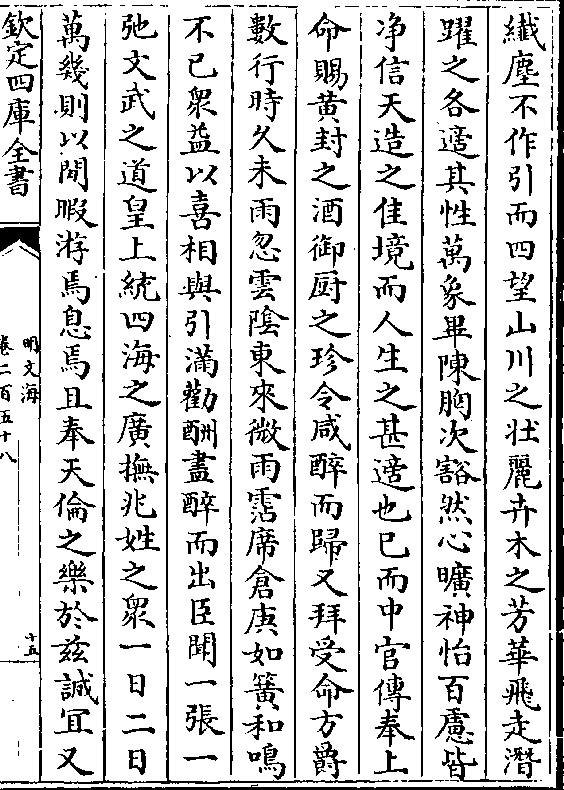 纎塵不作引而四望山川之壯麗卉木之芳華飛走濳
躍之各適其性萬象畢陳胸次豁然心曠神怡百慮皆
净信天造之佳境而人生之甚適也已而中官傳奉上
命賜黄封之酒御厨之珍令咸醉而歸又拜受命方爵
數行時久未雨忽雲隂東來微雨霑席倉庚如簧和鳴
不已衆益以喜相與引滿勸酬盡醉而出臣聞一張一
弛文武之道皇上統四海之廣撫兆姓之衆一日二日
萬幾則以閒暇游焉息焉且奉天倫之樂於兹誠宜又
欽定四庫全書
明文海
卷二百五十八
十五